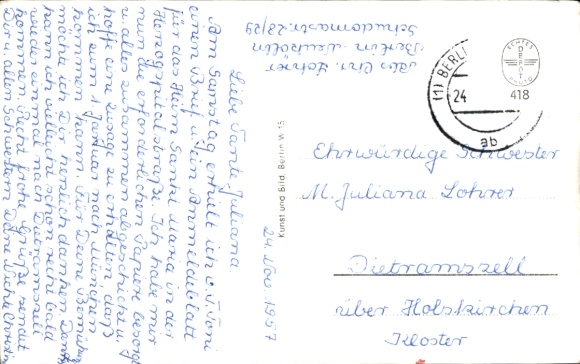 Liebe Tante Juliana
Am Samstag erhielt ich v. Toni
einen Brief u. ein Anmeldeblatt
für das Heim Sankt Maria in der
Herzogspitalstraße. Ich habe mir
nun die erforderlichen Papiere besorgt
u. alles zusammen abgeschickt u.
hoffe eine Zusage zu erhalten, daß
ich zum 1. Januar nach München
kommen kann. Für Deine Bemühung
möchte ich Dir herzlich danken. Dann
kann ich vielleicht schon recht bald
wieder einmal nach Dietramszell
kommen. Recht frohe Grüße sendet
Dir u. allen Schwestern Deine Nichte Christl
24. Nov. 1957
Abs. Chr. Lohrer
Berlin-Neukölln
Schudomastr. 28/29
Kunst und Bild, Berlin W 15
(1) BERLI
24
418
ab
ECHTES
PHOTO
Ehrwürdige Schwester
M. Juliana Lohrer
Dietramszell
über Holzkirchen
Kloster